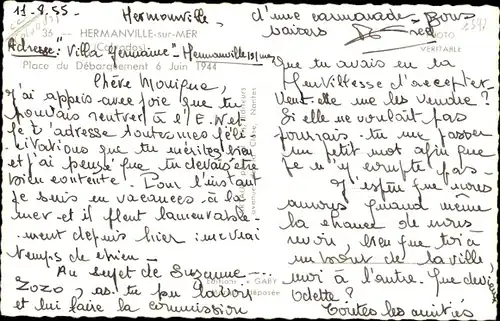 11-8.55
Hermanville
36 - HERMANVILLE-sur-MER
(Calvados)
Adresse: "Villa Germaine" Hermanville s/mer
Place du Débarquement 6 Juin 1944
Chère Monique,
J'ai appris avec joie que tu
pouvais rentrer à l'E.N. et
je t'adresse toutes mes féli-
citations que tu mérites bien
et j'ai pensé que tu devais être
bien contente. Pour l'instant
je suis en vacances à la
mer et il pleut lamentable
ment depuis hier: un vrai
temps de chien -
Au sujet de Suzanne
Zozo, as-tu pu la voir
et lui faire la commission
d'une camarade - Bons
baisers
PHOTO
VÉRITABLE
Que tu avais eu la
gentillesse d'accepter.
Veut-elle me les vendre?
Si elle ne voulait pas
pourrais-tu me passer
un petit mot afin que
je n'y compte pas -
J'espère que nous
aurons quand même
la chance de nous
voir, bien que toi à
un bout de la ville
moi à l'autre. Que devient
Odette?
Toutes les amitiés
Editions "GABY"
déposée